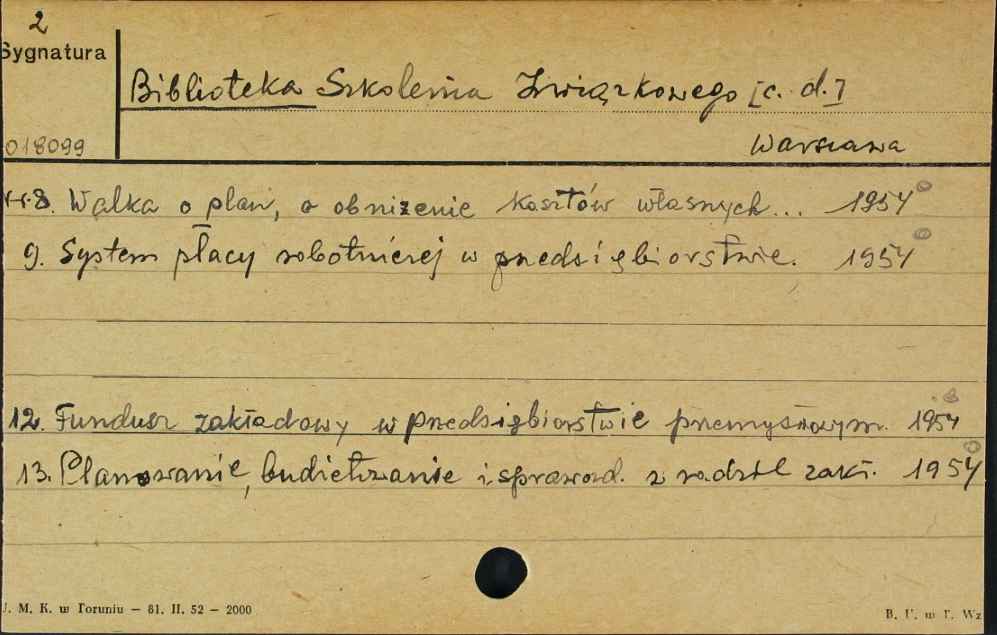 2
Sygnatura
Biblioteka Szkolenia Związkowego [c. d.]
018099
Warszawa
Nr 8. Walka o plan, o obniżenie kosztów własnych... 1954
9. System płacy robotniczej w przedsiębiorstwie. 1954
12. Fundusz zakładowy w przedsiębiorstwie przemysłowym. 1954
13. Planowanie, budżetowanie i sprawozd. z radził zakł. 1954
U. M. K. w Toruniu — 81. II. 52 — 2000
B. U. w T. Wz